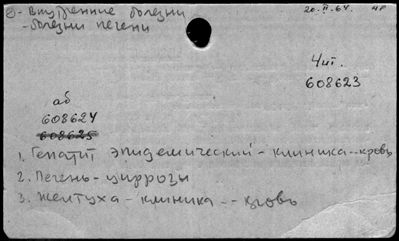 - Внутренние болезни 20.II.64. нр
- болезни печени
Чит.
608623
аб
608624
608625
1. Гепатит эпидемический - клиника - - кровь
2. Печень - циррозы
3. Желтуха - клиника - - кровь